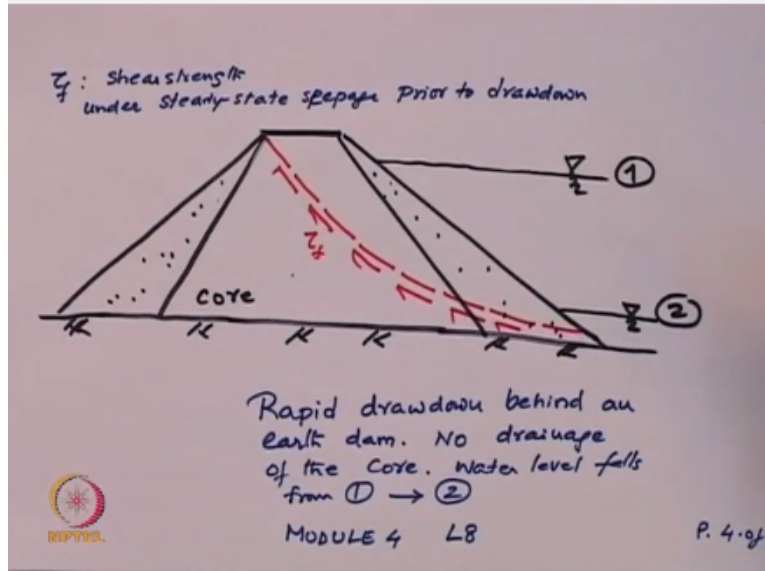 τf : Shear strength
under steady-state seepage prior to drawdown
1
2
τf
core
Rapid drawdown behind an
earth dam. No drainage
of the core. Water level falls
from 1 → 2
MODULE 4 L8
P. 4.of
NPTEL